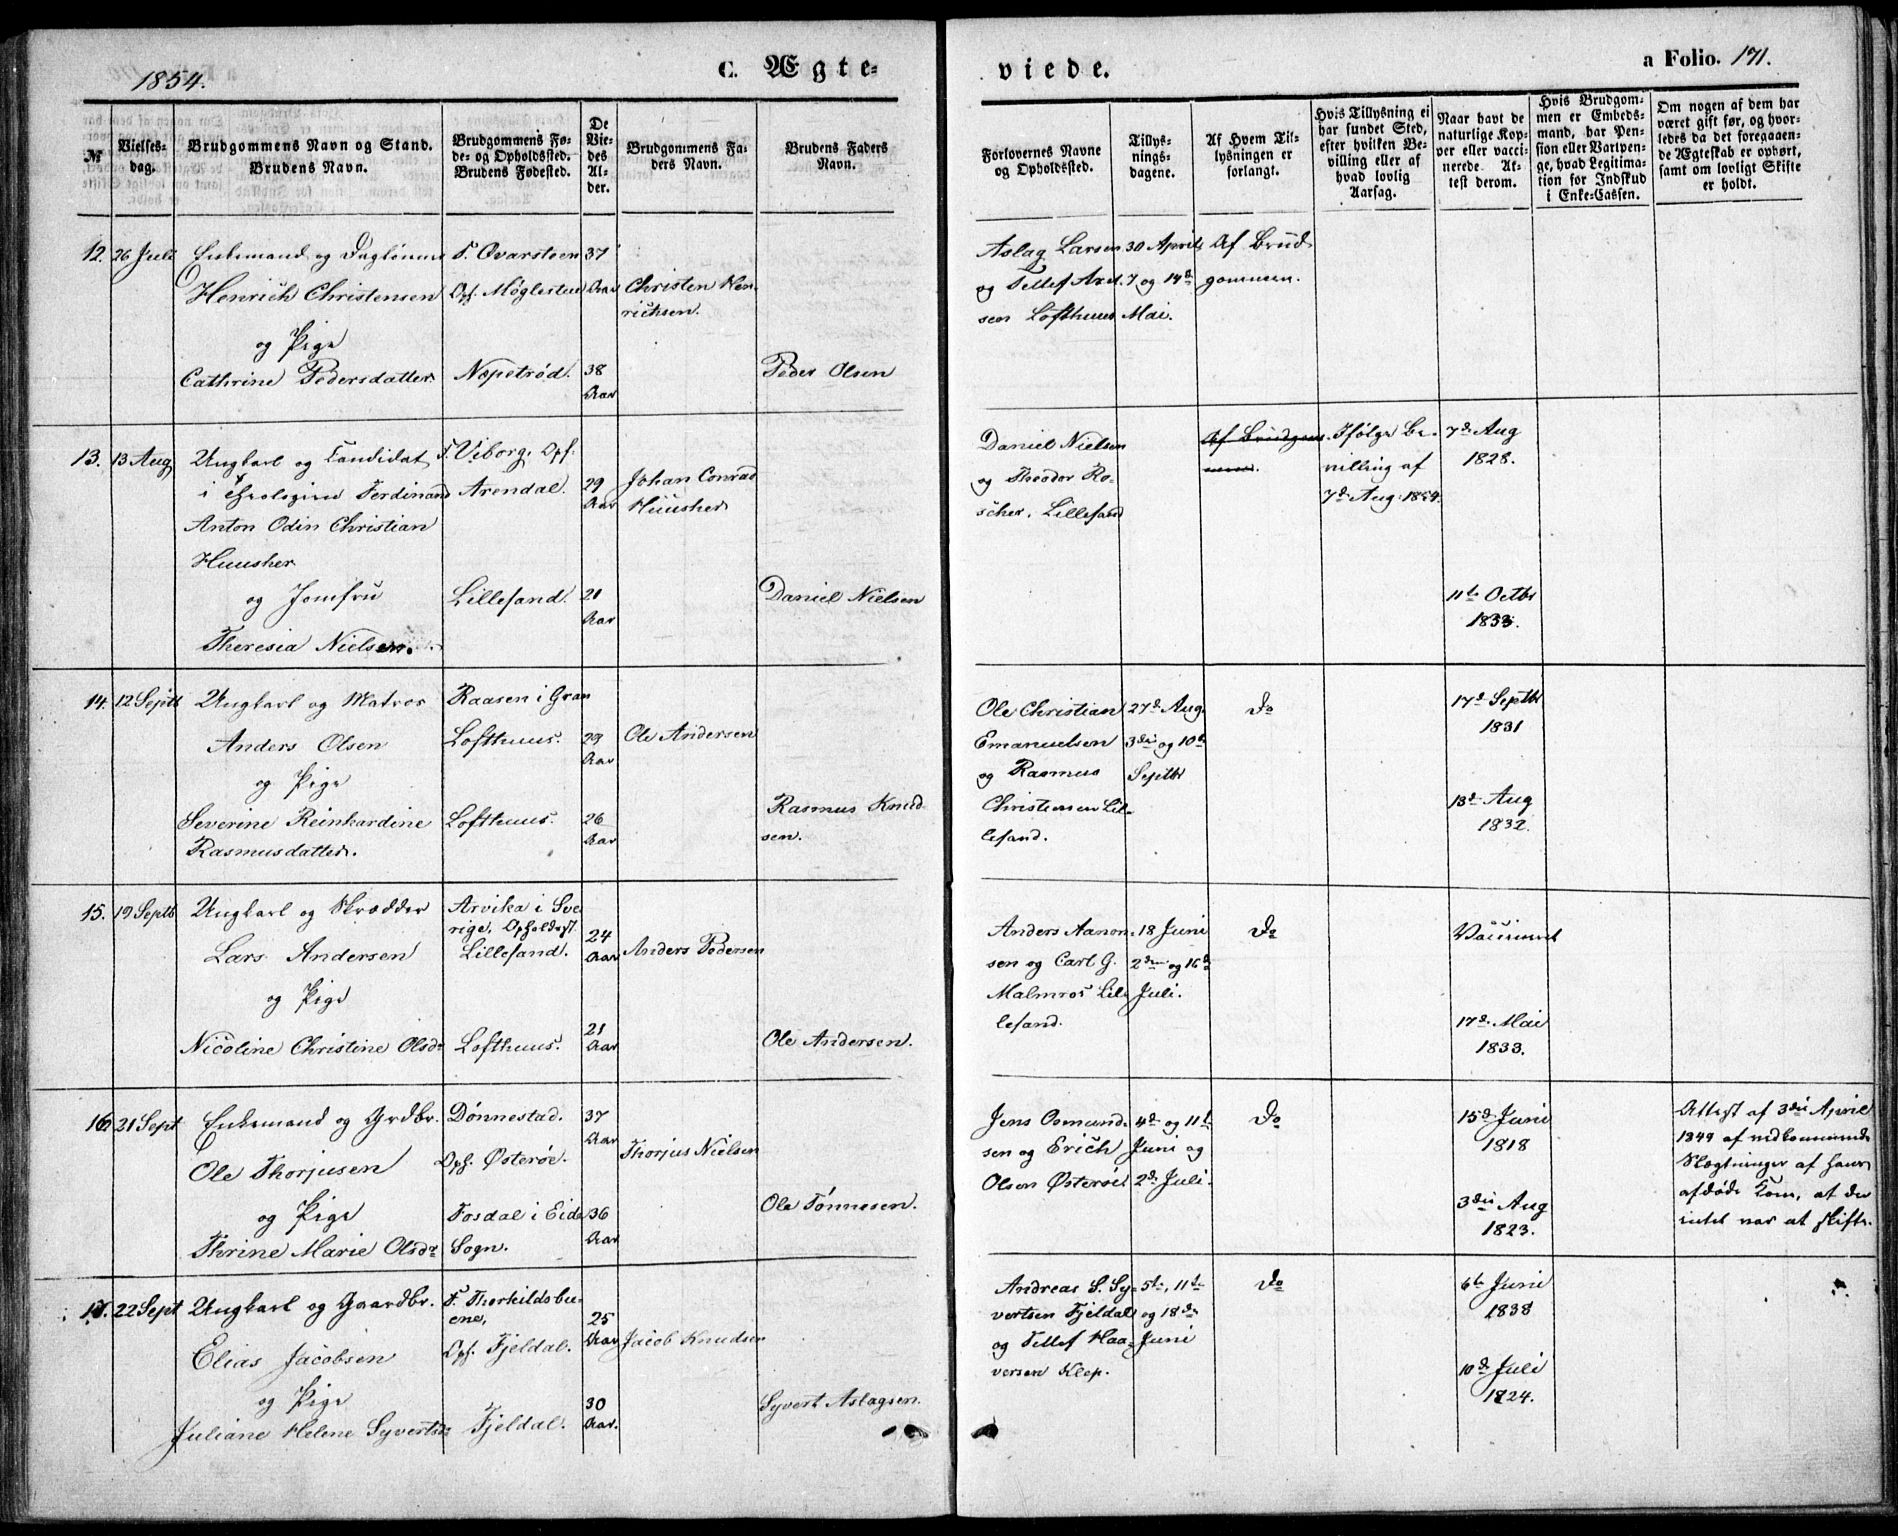 1854.
C. Ægte-
viede.
a Folio. 171.
№
Vielses-
dag.
Brudgommens Navn og Stand.
Brudens Navn.
Brudgommens Fø-
de- og Opholdssted.
Brudens Fødested.
De
Vie-
des
Al-
der.
Brudgommens Fa-
ders Navn.
Brudens Faders
Navn.
Forlovernes Navne
og Opholdssted.
Tillys-
nings-
dagene.
Af Hvem Til-
lysningen er
forlangt.
Hvis Tillysning ei
har fundet Sted,
efter hvilken Be-
villing eller af
hvad lovlig
Aarsag.
Naar havt de
naturlige Kop-
per eller vacci-
nerede. At-
test derom.
Hvis Brudgom-
men er Embeds-
mand, har Pen-
sion eller Vartpen-
ge, hvad Legitima-
tion for Indskud
i Enke-Cassen.
Om nogen af dem har
været gift før, og hvor-
ledes da det foregaaen-
de Ægteskab er ophørt,
samt om lovligt Skifte
er holdt.
12. 26 Juli
Enkemand og
Henrich Christensen
og Pige
Cathrine Pedersdatter
F. Ovarsteen
Opf. Møglestue
Nøpetrød.
37
Aar
38
Aar
Christen Hen-
richsen.
Peder Olsen
Aslag Larsen
og Tellef Axel-
sen Lofthuus
30 April
7 og 14d
Mai.
Af Brud
gommen.
13. 13 Aug
Ungkarl og Candidat
i Theologien Ferdinand
Anton Odin Christian
Huusher
og Jomfru
Theresia Nielsen.
F. Viborg, Opf.
Arendal.
Lillesand.
29
Aar
21
Aar
Johan Conrad
Huusher
Daniel Nielsen
Daniel Nielsen
og Theodor Ro-
scher. Lillesand
Ifølge Be-
villing af
7d Aug. 1854.
7d Aug
1828.
11te Octbr
1833.
14. 12 Septb
Ungkarl og Matros
Anders Olsen
og Pige
Severine Reinhardine
Rasmusdatter.
Raasen i Gran
Lofthuus.
Lofthuus.
29
Aar
26
Aar
Ole Andersen
Rasmus Knud-
sen.
Ole Christian
Emanuelsen
og Rasmus
Christensen Lil-
lesand.
27d Aug.
3die og 10d
Septbr
Do
17d Septbr
1831
13d Aug
1832.
15. 19 Septb
Ungkarl og Skrædder
Lars Andersen
og Pige
Nicoline Christine Olsdr
Arvika i Sve-
rige, Opholdsst.
Lillesand.
Lofthuus.
24
Aar
21
Aar
Anders Pedersen
Ole Andersen.
Anders Aanon-
sen og Carl G.
Malmros Lil-
lesand.
18 Juni
2den og 16d
Juli.
Do
17d Mai
1833.
16. 21 Sept
Enkemand og Grdbr.
Ole Thorjusen
og Pige
Thrine Marie Olsdr
Dønnestad.
Opf. Østerøe.
Fosdal i Eide
Sogn.
37
Aar
36
Aar
Thorjus Nielsen
Ole Tønnesen.
Jens Osmund-
sen og Erich
Olsen Østerøe
4d og 11te
Juni og
2d Juli.
Do
15d Juni
1818
3die Aug
1823.
Attest af 3die April
1849 af vedkommende
Slægtninger af hans
afdøde Kone, at der
intet var at skifte.
17. 22 Sept
Ungkarl og Gaardbr.
Elias Jacobsen
og Pige
Juliane Helene Syvertsdr
F. Thorkildsbu-
ene,
Opf. Fjeldal.
Fjeldal.
25
Aar
30
Aar.
Jacob Knudsen
Syvert Aslagsen.
Andreas S. Sy-
vertsen Fjeldal
og Tellef Haa-
versen Klep.
5te, 11te
og 18de
Juni
Do
6te Juni
1838
10d Juli
1824.